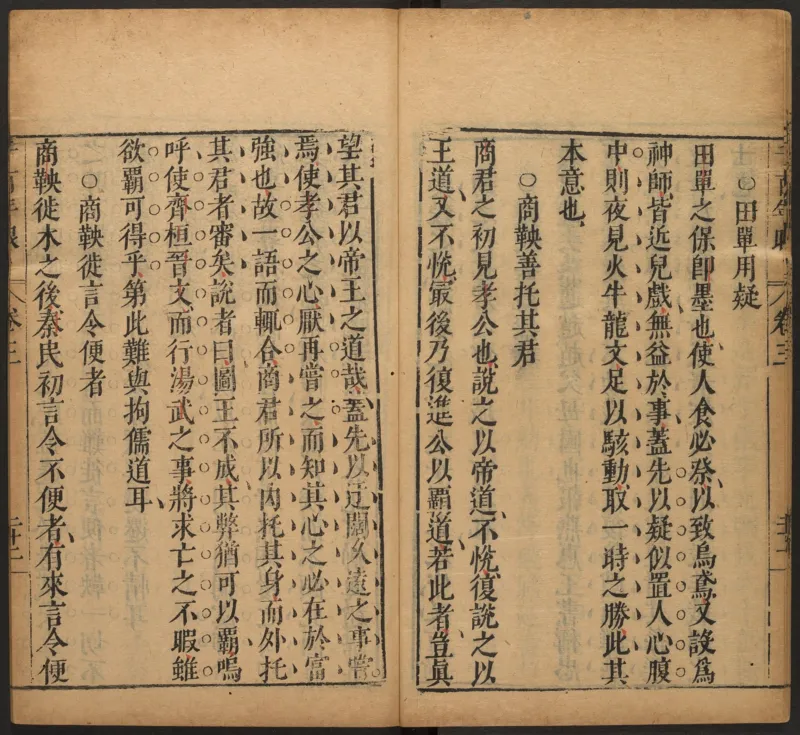 ○田單用疑
田單之保卽墨也使人食必祭以致烏鳶又設爲
神師皆近兒戲無益於事蓋先以疑似置人心腹
中則夜見火牛龍文足以駭動取一時之勝此其
本意也
○商鞅善托其君
商君之初見孝公也說之以帝道不悅復說之以
王道又不悅最後乃復進公以霸道若此者豈眞
望其君以帝王之道哉蓋先以迂闊久遠之事嘗
焉使孝公之心厭再嘗之而知其心之必在於富
強也故一語而輒合商君所以內托其身而外托
其君者審矣說者曰圖王不成其弊猶可以霸嗚
呼使齊桓晉文而行湯武之事將求亡之不暇雖
欲霸可得乎第此難與拘儒道耳
○商鞅徙言令便者
商鞅徙木之後秦民初言令不便者有來言令便
卷三